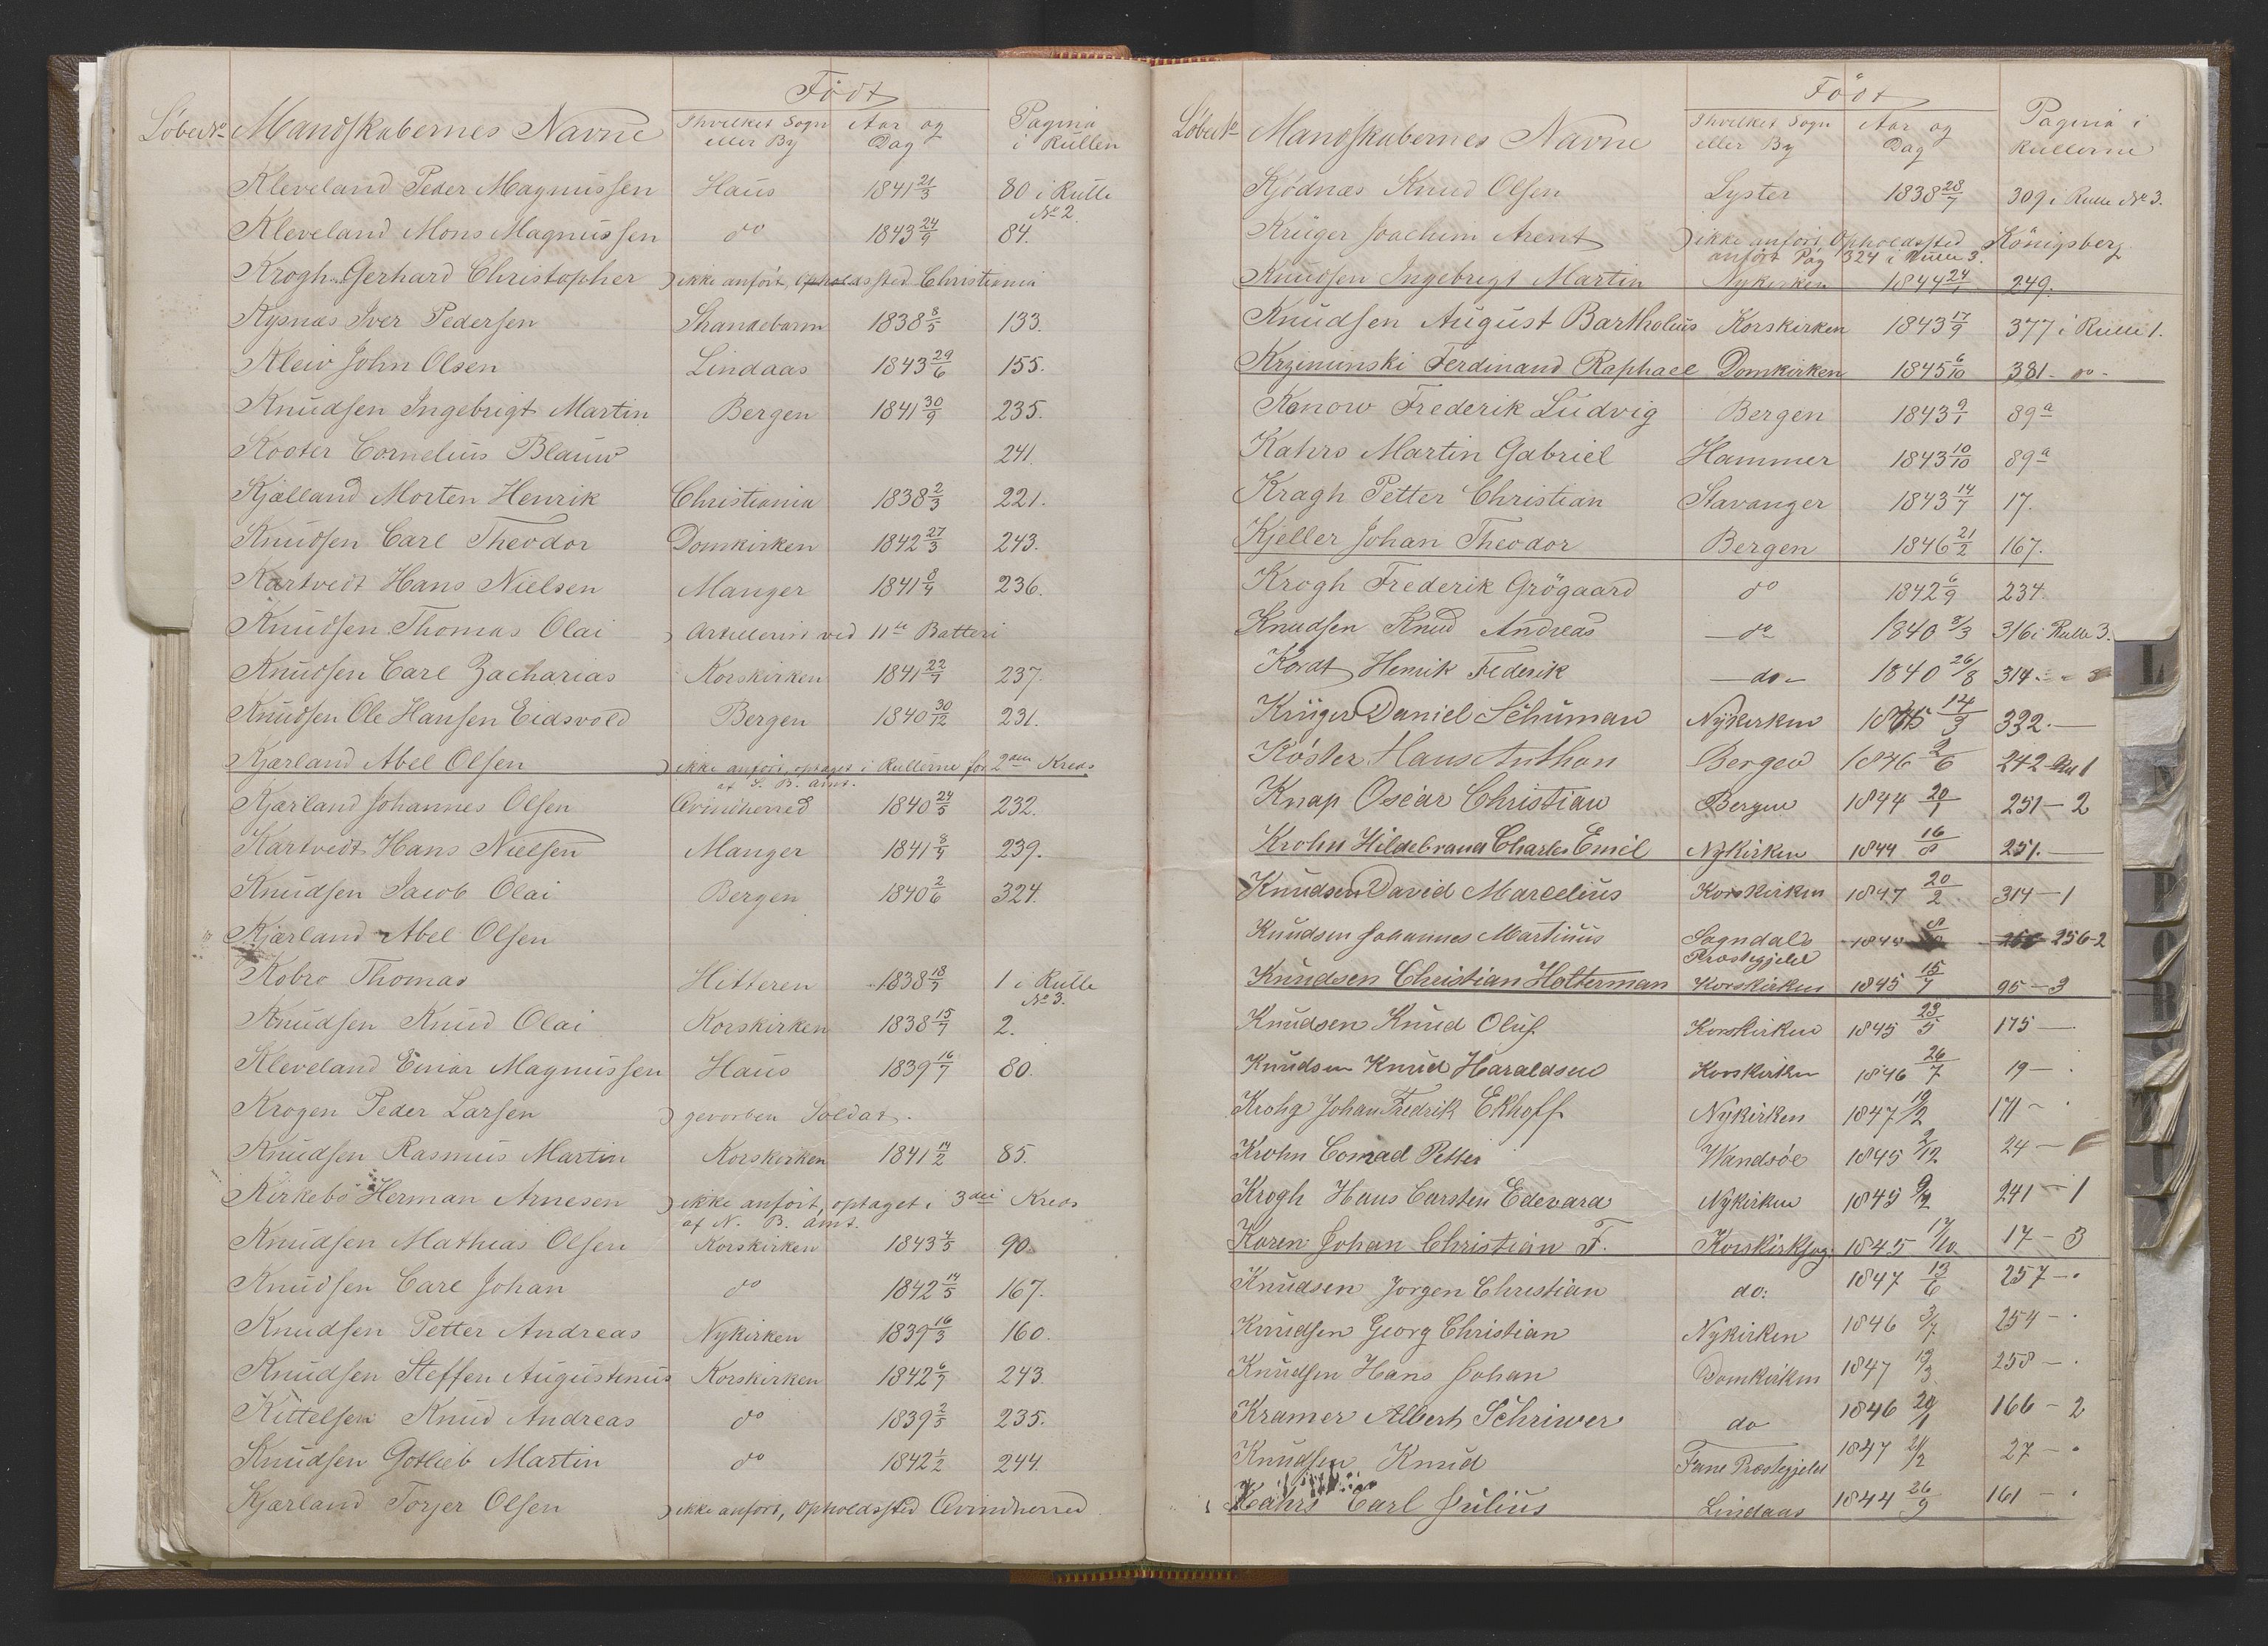 Født
Løbe No Mandskabernes Navne Ihvilket Sogn eller By Aar og Dag Pagina i Rullen
Kleveland Peder Magnussen Haus 1841 21/3 80 i Rulle No 2
Kleveland Mons Magnussen do 1843 24/9 84.
Krogh Gerhard Christopher ikke anført, Opholdssted Christiania
Kysnæs Iver Pedersen Strandebarm 1838 8/5 133.
Kleiv John Olsen Lindaas 1843 29/6 155.
Knudsen Ingebrigt Martin Bergen 1841 30/9 235.
Kooter Cornelius Blauw 241.
Kjelland Morten Henrik Christiania 1838 2/3 221.
Knudsen Carl Theodor Domkirken 1842 27/3 243.
Kartvedt Hans Nielsen Manger 1841 8/4 236.
Knudsen Thomas Olai Artillerist ved 11te Batteri
Knudsen Carl Zacharias Korskirken 1841 22/1 237.
Knudsen Ole Hansen Eidsvold Bergen 1840 30/12 231.
Kjærland Abel Olsen ikke anført, optaget i Rullerne for 2den Kreds
af S. B. Amt.
Kjærland Johannes Olsen Qvindherred 1840 24/5 232.
Kartvedt Hans Nielsen Manger 1841 8/4 239.
Knudsen Jacob Olai Bergen 1840 2/6 324.
Kjærland Abel Olsen
Kobro Thomas Hitteren 1838 18/7 1 i Rulle No 3.
Knudsen Knud Olai Korskirken 1838 15/7 2.
Kleveland Einar Magnussen Haus 1839 16/7 80.
Krogen Peder Larsen gevorben Soldat.
Knudsen Rasmus Martin Korskirken 1841 14/2 85.
Kirkebø Herman Arnesen ikke anført, optaget i 3die Kreds
af N. B. Amt.
Knudsen Mathias Olsen Korskirken 1843 4/5 90
Knudsen Carl Johan do 1842 14/5 167.
Knudsen Petter Andreas Nykirken 1839 16/3 160.
Knudsen Steffen Augustinus Korskirken 1842 6/7 243.
Kittelsen Knud Andreas do 1839 2/5 235.
Knudsen Gotlieb Martin do 1842 1/2 244.
Kjærland Torjer Olsen ikke anført, Opholdssted Qvindherred
Født
Løbe No Mandskabernes Navne Ihvilket Sogn eller By Aar og Dag Pagina i Rullerne
Kjødnæs Knud Olsen Lyster 1838 28/7 309 i Rulle No 3.
Krüger Joachim Arent ikke anført, Opholdssted Königsberg
anført Pag 324 i Rulle 3.
Knudsen Ingebrigt Martin Nykirken 1844 24/1 249.
Knudsen August Bartholius Korskirken 1843 17/9 377 i Rulle 1.
Krzeminski Ferdinand Raphael Domkirken 1845 6/10 381 - do -
Konow Frederik Ludvig Bergen 1843 9/1 89a
Kahrs Martin Gabriel Hammer 1843 10/10 89a
Kragh Petter Christian Stavanger 1843 14/7 17.
Kjeller Johan Theodor Bergen 1846 21/2 167.
Krogh Frederik Grøgaard do 1842 6/9 234.
Knudsen Knud Andreas do 1840 8/3 316 i Rulle 3.
Kordt Henrik Federik do 1840 26/8 314.
Krüger Daniel Schuman Nykirken 14/3 332. —
Køster Hans Anthon Bergen 1846 2/6 242 Ru 1
Knap Oscar Christian Bergen 1844 20/1 251 - 2
Krohn Hildebrand Charles Emil Nykirken 1844 16/8 251. —
Knudsen David Marcelius Korskirken 1847 20/2 314 - 1
Knudsen Johannes Martinus Sogndals Præstegjeld 256 - 2
Knudsen Christian Holterman Korskirken 1845 15/7 95 - 3
Knudsen Knud Oluf Korskirken 1845 23/5 175 —
Knudsen Knud Haraldsen Korskirken 1846 26/7 19 —
Krohg Johan Fredrik Ekhoff Nykirken 1847 19/2 171 -
Krohn Conrad Petter Wandsöe 1845 2/12 24 —
Krogh Hans Carsten Edevard Nykirken 1845 9/2 241 - 1
Koren Johan Christian F. Korskirksog. 1845 17/10 17 - 3
Knudsen Jørgen Christian do: 1847 13/6 257 -
Knudsen Georg Christian Nykirken 1846 3/7 254 -
Knudsen Hans Johan Domkirken 1847 13/3 258 -
Kramer Albert Schriwer do 1846 29/1 166 - 2
Knudsen Knud Fane Præstegjeld 1847 21/2 27 -
Kahrs Carl Julius Lindaas 1844 26/9 161 -
L
N
P